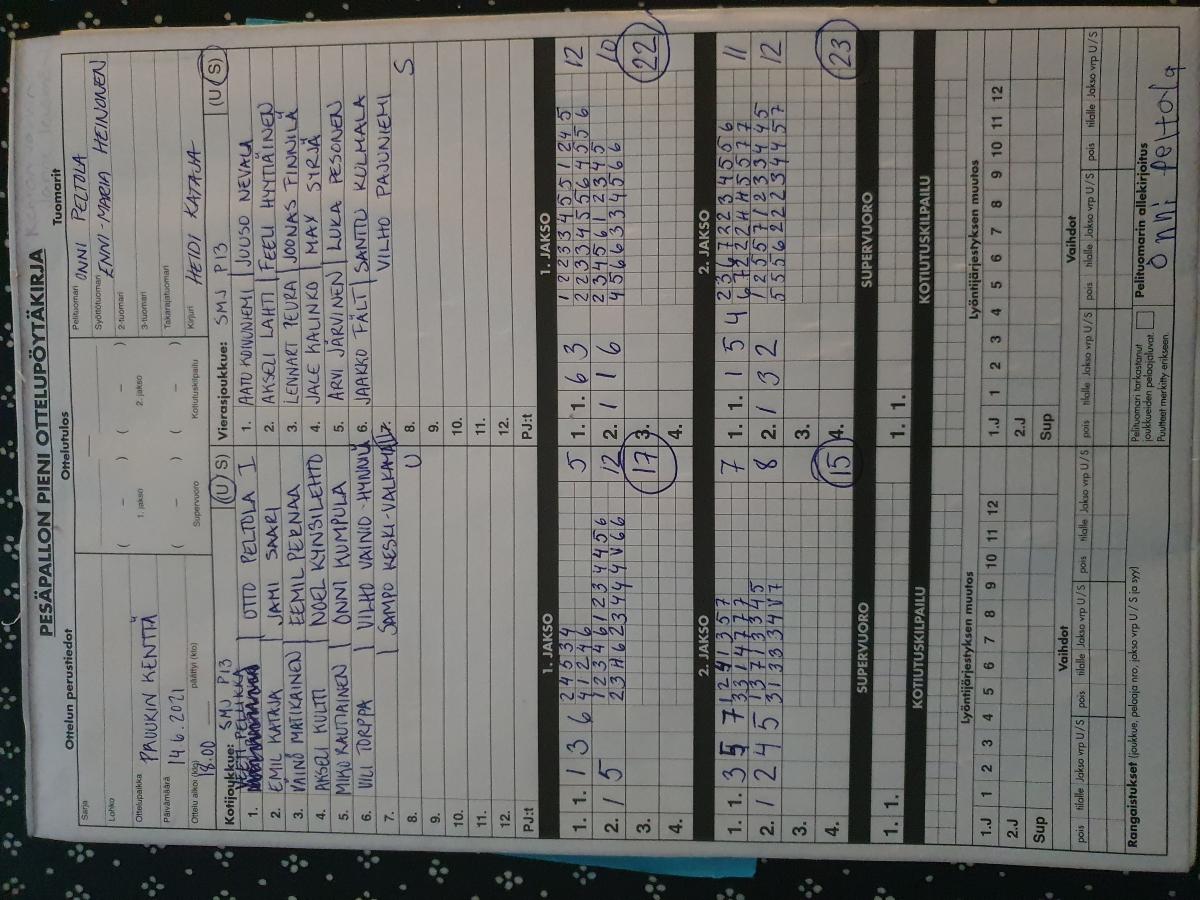 PESÄPALLON PIENI OTTELUPÖYTÄKIRJA
Ottelun perustiedot
Ottelutulos
Tuomarit
Sarja
Lohko
Ottelupaikka PAUUKIN KENTTÄ
Päivämäärä 14.6.2021
Ottelu alkoi (klo) 18.00 päättyi (klo)
( – ) ( – )
1. jakso 2. jakso
( – ) ( – )
Supervuoro Kotiutuskilpailu
Pelituomari ONNI PELTOLA
Syöttötuomari ENNI-MARIA HEINONEN
2-tuomari
3-tuomari
Takarajatuomari
Kirjuri HEIDI KATAJA
Kotijoukkue: SMJ P13 (U S)
1. VEETI PELLIKKA | OTTO PELTOLA I
2. EMIL KATAJA | JAMI SAARI
3. VÄINÖ MATIKAINEN | EEMIL PERNAA
4. AKSELI KULTTI | NOEL KYNSILEHTO
5. MIKO RAUTIAINEN | ONNI KUMPULA
6. VILI TORPPA | VILHO VAINIO-HYNNILÄ
7. | SAMPO KESKI-VALKAMA
8. U
9.
10.
11.
12.
PJ:t
Vierasjoukkue: SMJ P13 (U S)
1. AATU KOIVUNIEMI | JUUSO NEVALA
2. AKSELI LAHTI | EELI HYYTIÄINEN
3. LENNART PEURA | JOONAS PINNILÄ
4. JALE KALINKO | MAX SYRJÄ
5. ARVI JÄRVINEN | LUKA PESONEN
6. JAAKKO FÄLT | SANTTU KULMALA
7. VILHO PAJUNIEMI
8. S
9.
10.
11.
12.
PJ:t
1. JAKSO
1. 1. 1 3 6 2 4 5 3 4 5
4 1 2 4 6
2. 1 5 1 2 3 4 6 1 2 3 4 4 5 6 12
2 3 4 6 2 3 4 4 4 V 6 6
3. 17
4.
1. JAKSO
1. 1. 6 3 1 2 2 3 3 4 5 5 1 2 4 5 12
2 2 3 3 4 5 5 6 4 5 5 6
2. 1 1 6 2 3 4 5 6 1 2 3 4 5 10
4 5 6 6 3 3 4 5 6 6
3. 22
4.
2. JAKSO
1. 1. 3 5 7 1 2 4 1 3 5 7 7
3 3 1 4 7 7 7
2. 1 2 4 5 1 3 7 1 3 3 4 5 8
3 1 3 3 3 4 V 7
3.
4. 15
2. JAKSO
1. 1. 1 5 4 2 3 6 7 2 2 3 4 5 5 6 11
6 7 7 2 2 4 4 5 5 7 7
2. 1 3 2 1 2 5 5 7 1 2 3 3 4 4 5 12
5 5 5 6 2 2 2 3 4 4 5 7
3.
4. 23
SUPERVUORO
1. 1.
SUPERVUORO
1. 1.
KOTIUTUSKILPAILU
KOTIUTUSKILPAILU
Lyöntijärjestyksen muutos
1.J 1 2 3 4 5 6 7 8 9 10 11 12
2.J
Sup
Lyöntijärjestyksen muutos
1.J 1 2 3 4 5 6 7 8 9 10 11 12
2.J
Sup
Vaihdot
pois tilalle Jakso vrp U/S pois tilalle Jakso vrp U/S pois tilalle Jakso vrp U/S
Vaihdot
pois tilalle Jakso vrp U/S pois tilalle Jakso vrp U/S pois tilalle Jakso vrp U/S
Rangaistukset (joukkue, pelaaja nro, jakso vrp U / S ja syy)
Pelituomari tarkastanut
joukkueiden pelaajaluvat.
Puutteet merkitty erikseen.
Pelituomarin allekirjoitus
Onni Peltola